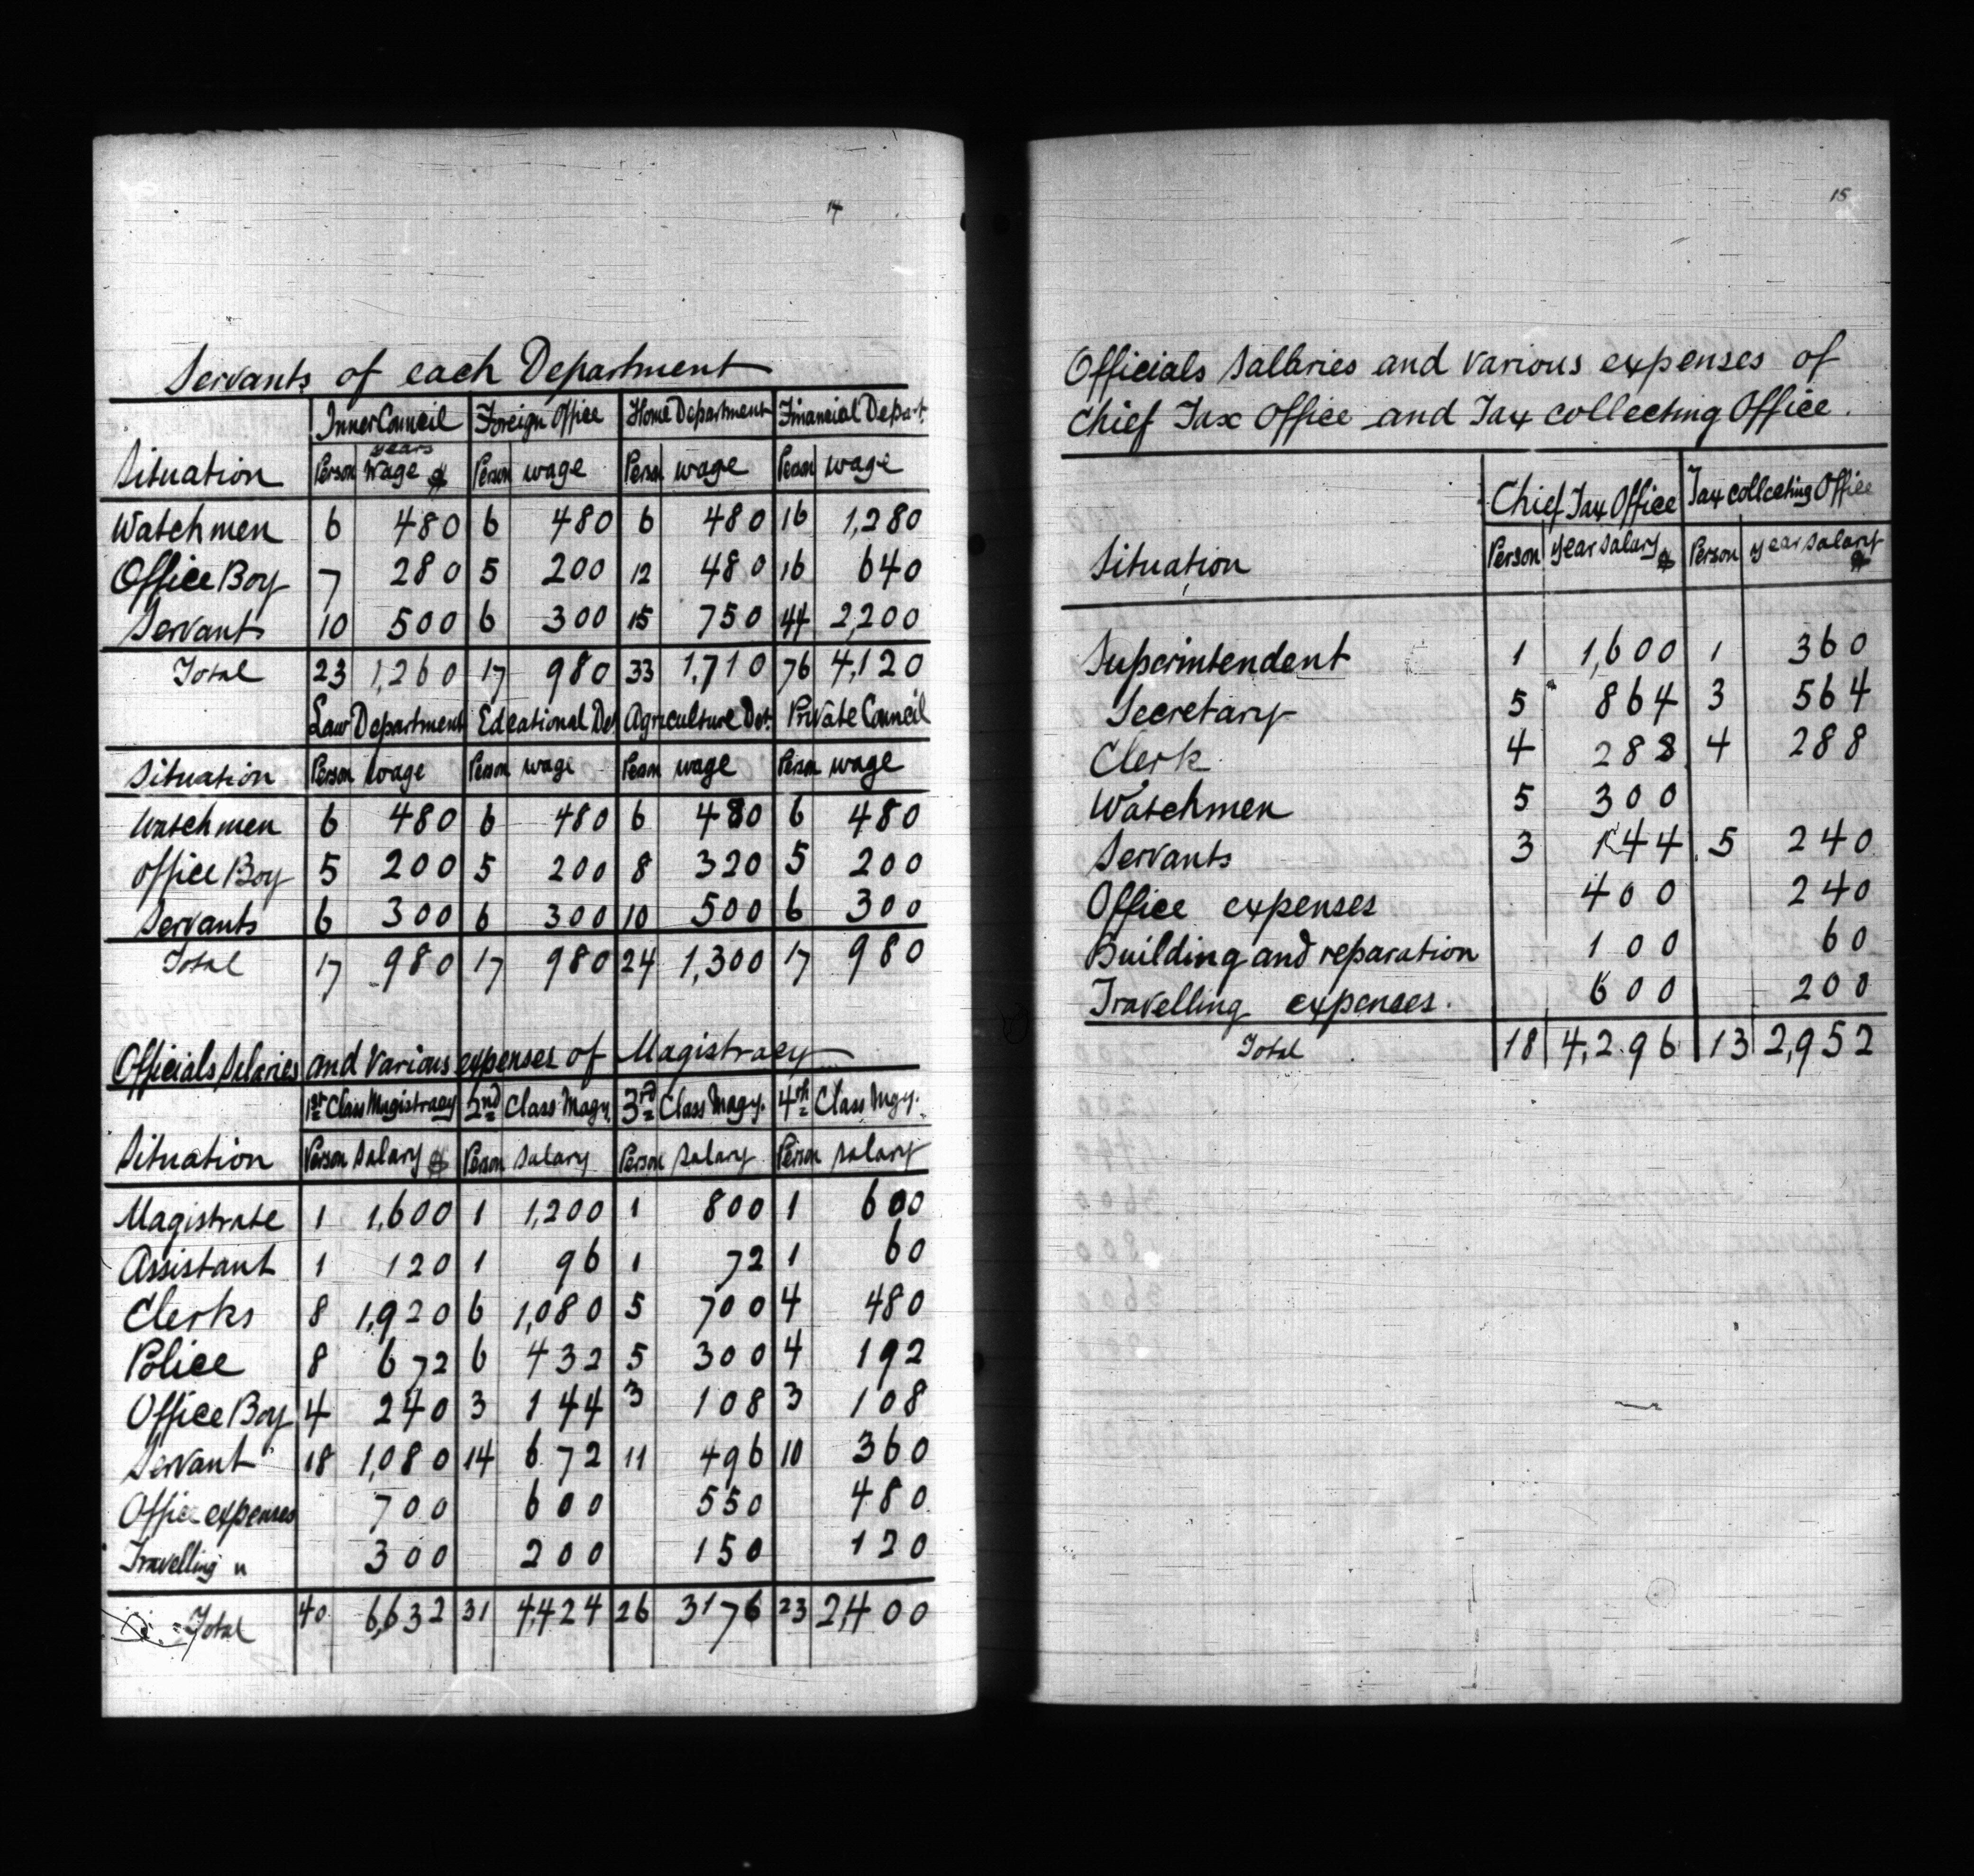 14
Servants of each Department
Inner Council Foreign Office Home Department Financial Depart.
years
Situation Person Wage $ Person wage Person wage Person wage
Watchmen 6 480 6 480 6 480 16 1,280
Office Boy 7 280 5 200 12 480 16 640
Servants 10 500 6 300 15 750 44 2,200
Total 23 1,260 17 980 33 1,710 76 4,120
Law Department Edeational Det. Agriculture Det. Private Council
Situation Person wage Person wage Person wage Person wage
Watchmen 6 480 6 480 6 480 6 480
Office Boy 5 200 5 200 8 320 5 200
Servants 6 300 6 300 10 500 6 300
Total 17 980 17 980 24 1,300 17 980
Officials Salaries and Various expenses of Magistracy
1st Class Magistracy 2nd Class Magy. 3rd Class Magy. 4th Class Mgy.
Situation Person Salary $ Person Salary Person Salary Person Salary
Magistrate 1 1,600 1 1,200 1 800 1 600
Assistant 1 120 1 96 1 72 1 60
Clerks 8 1,920 6 1,080 5 700 4 480
Police 8 672 6 432 5 300 4 192
Office Boy 4 240 3 144 3 108 3 108
Servant 18 1,080 14 672 11 496 10 360
Office expenses 700 600 550 480
Travelling " 300 200 150 120
Total 40 6,632 31 4,424 26 3176 23 2,400
15
Officials Sallaries and various expenses of
Chief Tax Office and Tax collecting Office.
Chief Tax Office Tax collecting Office
Situation Person year salary $ Person year salary $
Superintendent 1 1,600 1 360
Secretary 5 864 3 564
Clerk 4 288 4 288
Watchmen 5 300
Servants 3 144 5 240
Office expenses 400 240
Building and reparation 100 60
Travelling expenses. 600 200
Total 18 4,296 13 2,952